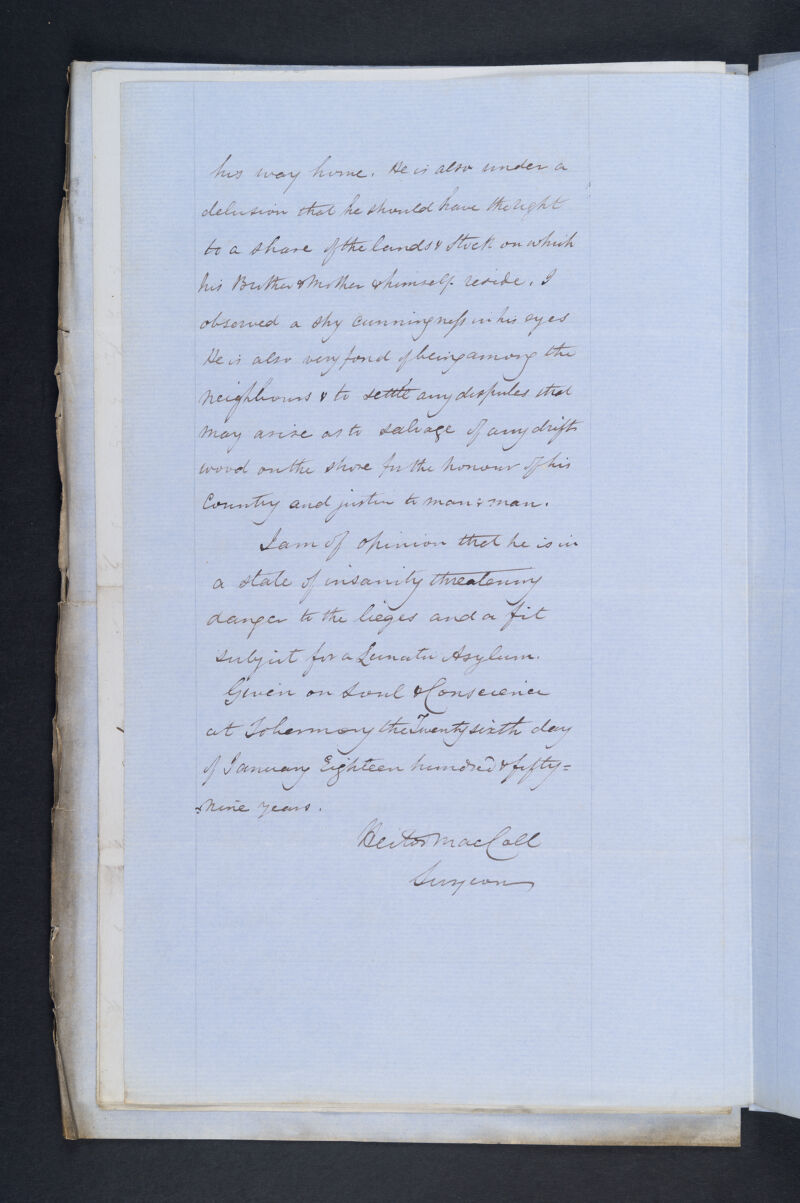 his way home. He is also under a
delusion that he should have the right
to a share of the lands & stock on which
his Brother & Mother & himself reside. I
observed a shy cunningness in his eyes
He is also very fond of being among the
neighbours & to settle any disputes that
may arise as to salvage of any drift
wood on the shore for the honour of his
Country and justice to man & man.
I am of opinion that he is in
a state of insanity threatening
danger to the lieges and a fit
subject for a Lunatic Asylum.
Given on Soul & Conscience
at Tobermory the Twenty sixth day
of January Eighteen hundred & fifty=
=nine years.
Hector MacColl
Surgeon